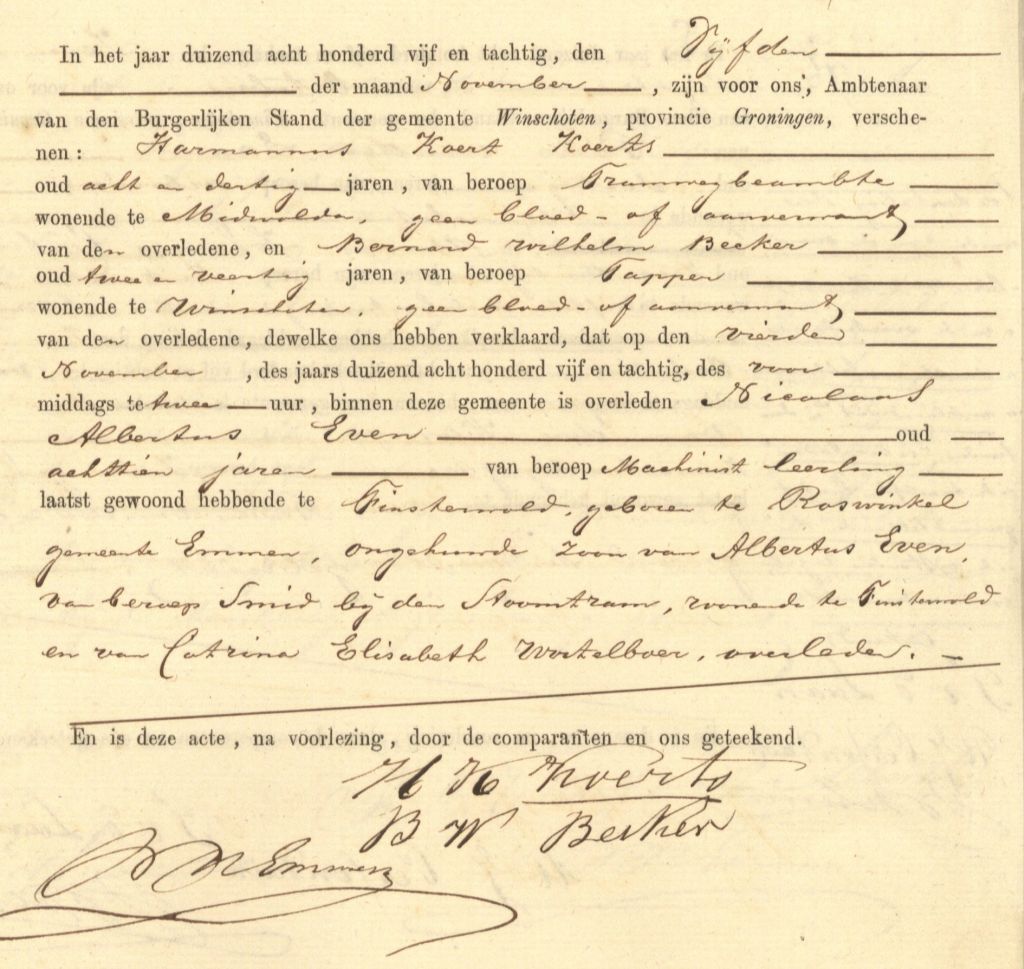 In het jaar duizend acht honderd vijf en tachtig, den Vijfden
der maand November, zijn voor ons, Ambtenaar
van den Burgerlijken Stand der gemeente Winschoten, provincie Groningen, versche-
nen: Harmannus Koert Koerts
oud acht en dertig jaren, van beroep Tramwegbeambte
wonende te Midwolda, geen bloed- of aanverwant
van den overledene, en Bernard Wilhelm Becker
oud twee en veertig jaren, van beroep Tapper
wonende te Winschoten, geen bloed- of aanverwant,
van den overledene, dewelke ons hebben verklaard, dat op den vierden
November, des jaars duizend acht honderd vijf en tachtig, des voor
middags te twee uur, binnen deze gemeente is overleden Nicolaas
Albertus Even oud
achttien jaren van beroep Machinist leerling
laatst gewoond hebbende te Finsterwold, geboren te Roswinkel
gemeente Emmen, ongehuwde zoon van Albertus Even,
van beroep Smid bij den Stoomtram, wonende te Finsterwold
en van Catrina Elisabeth Wortelboer, overleden.
En is deze acte, na voorlezing, door de comparanten en ons geteekend.
H K Koerts
B W Becker